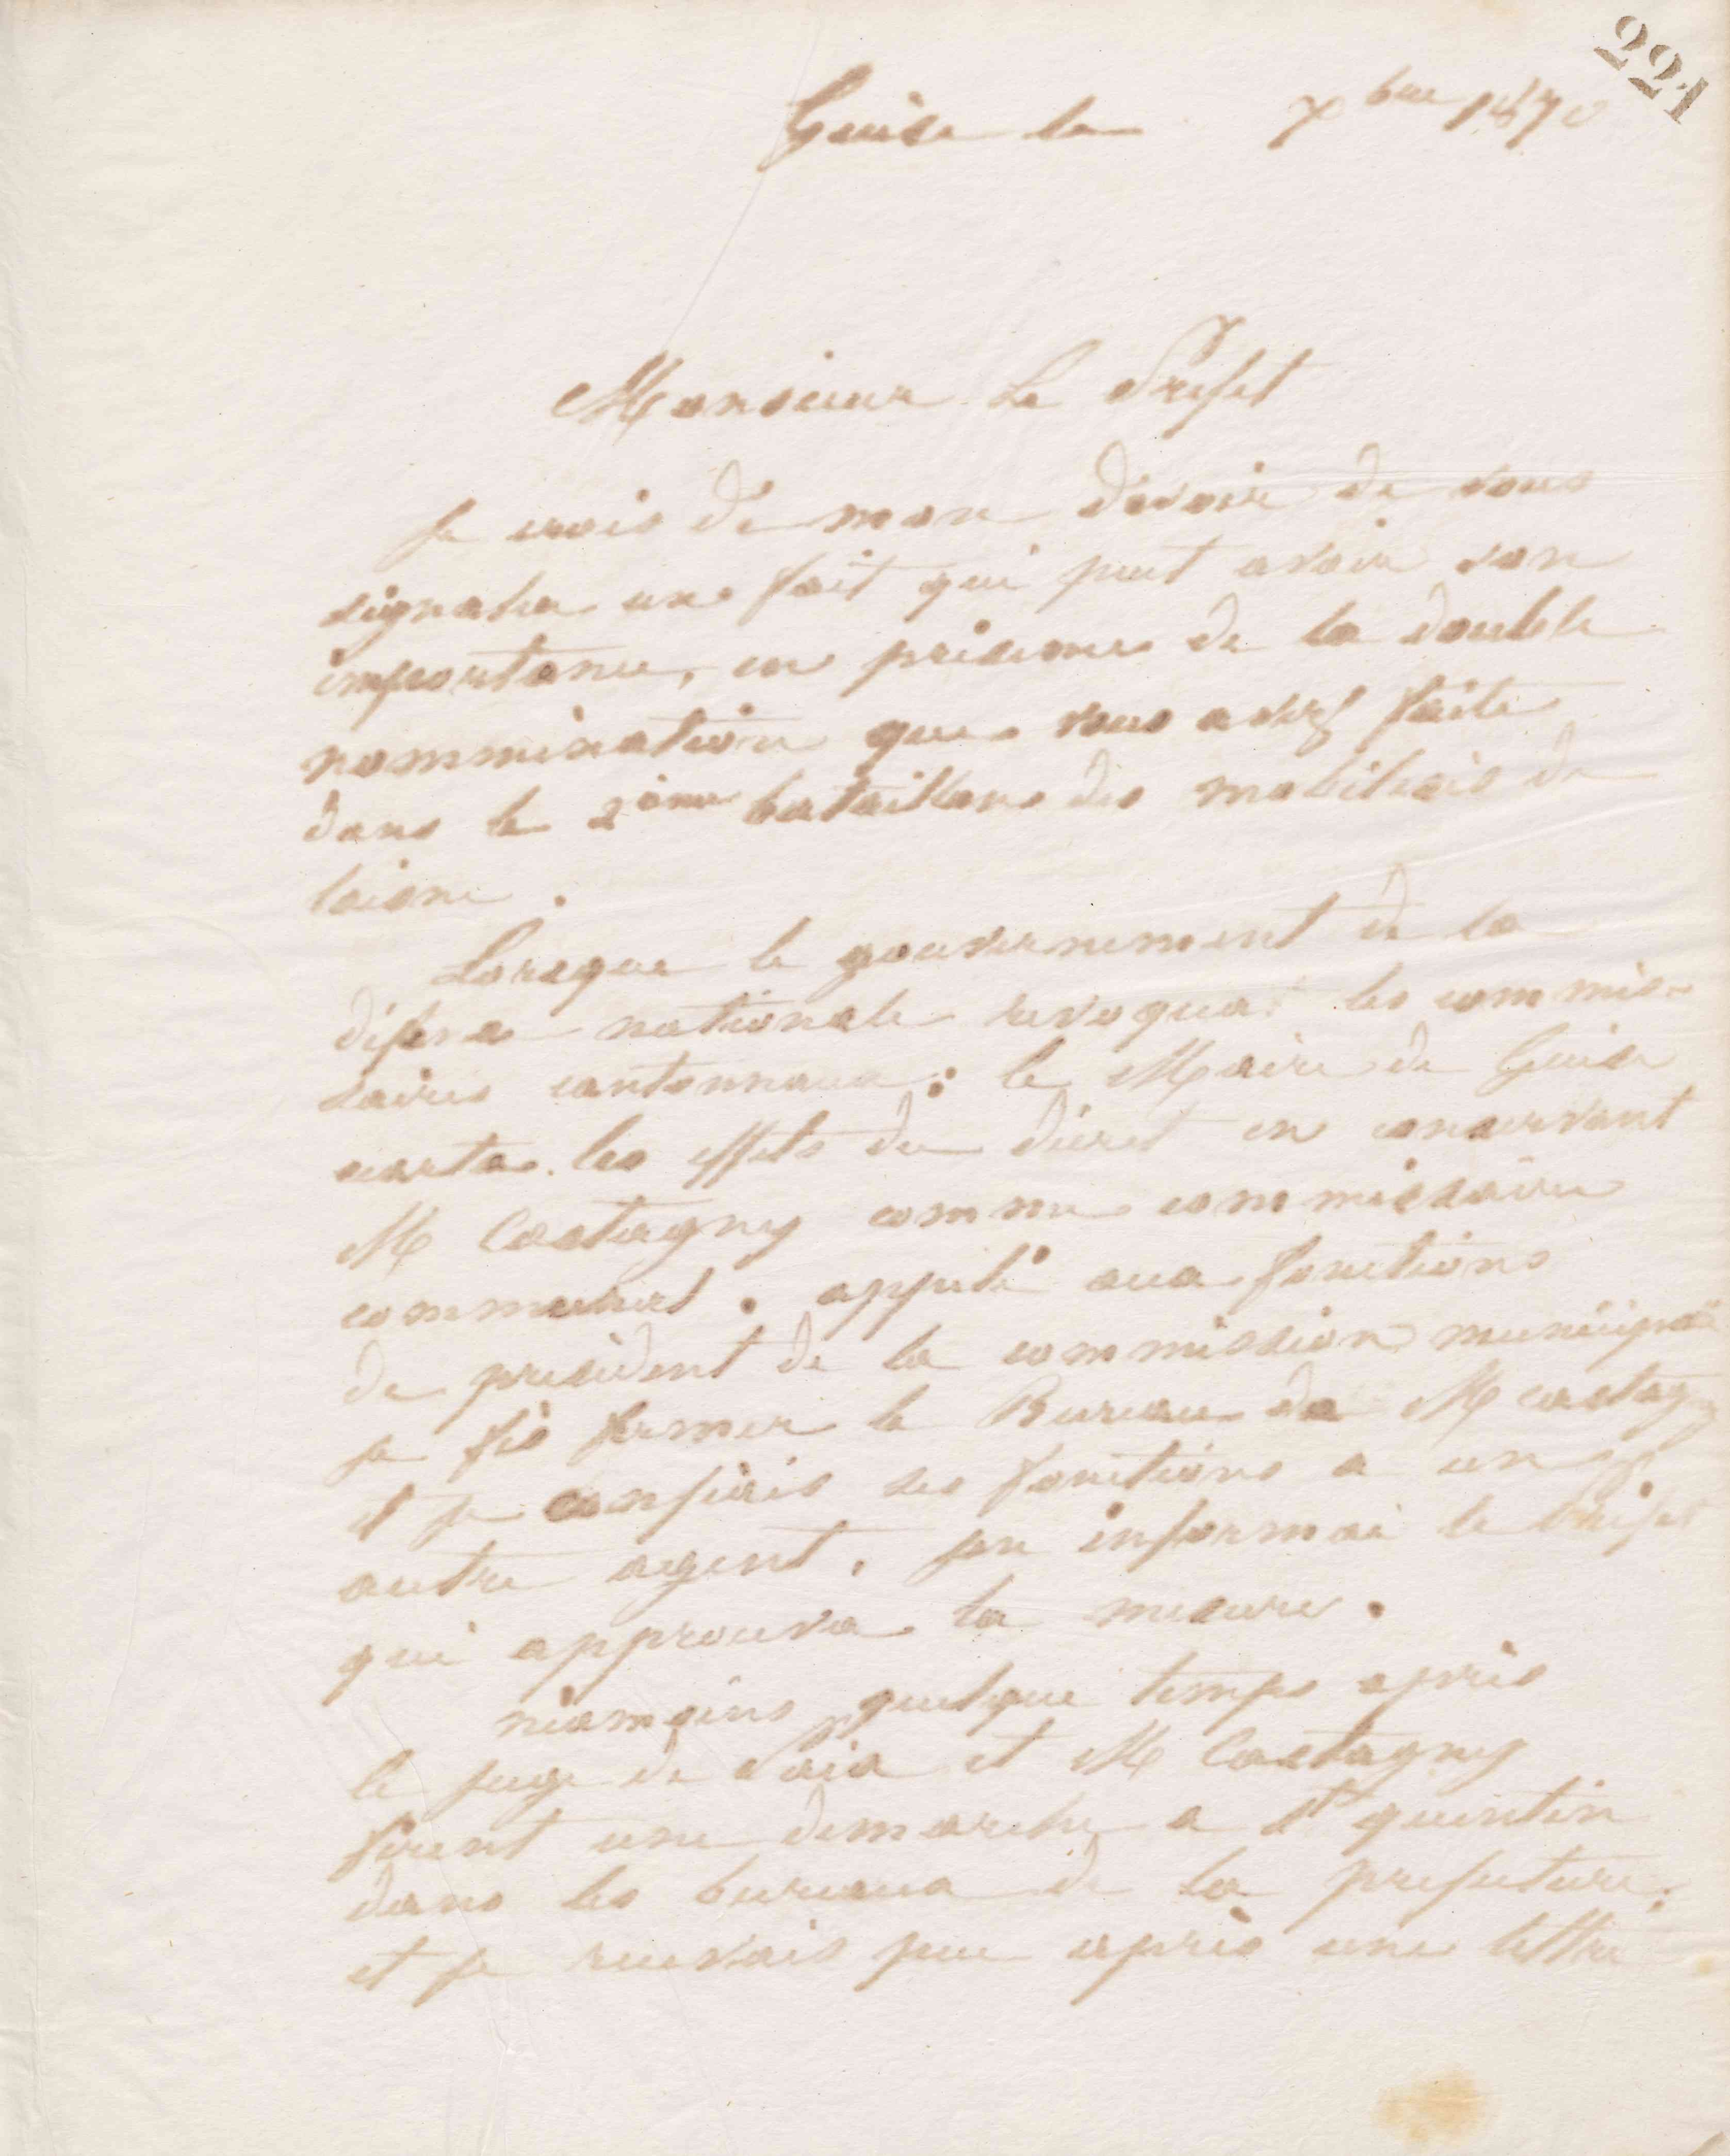 221
Guise le Xbre 1870
Monsieur Le Prefet
Je crois de mon devoir de vous
signaler un fait qui peut avoir son
importance, en présence de la double
nommination que vous avez faite
dans le 2ième bataillon des mobilisés de
l'aisne.
Lorsque le gouvernement de la
défense nationale revoqua les commis-
saires cantonnaux : le Maire de Guise
écarta les effets du décret en conservant
M Castagny comme commissaire
communal. appelé aux fonctions
de président de la commission municipale
je fis fermer le Bureau de M castagny
et je confiais ses fonctions a un
autre agent, j'en informai le préfet
qui approuva la mesure.
néamoins quelque temps après
le juge de Paix et M Castagny
firent une demarche a St quentin
dans les bureaux de la prefecture,
et je recevais peu après une lettre